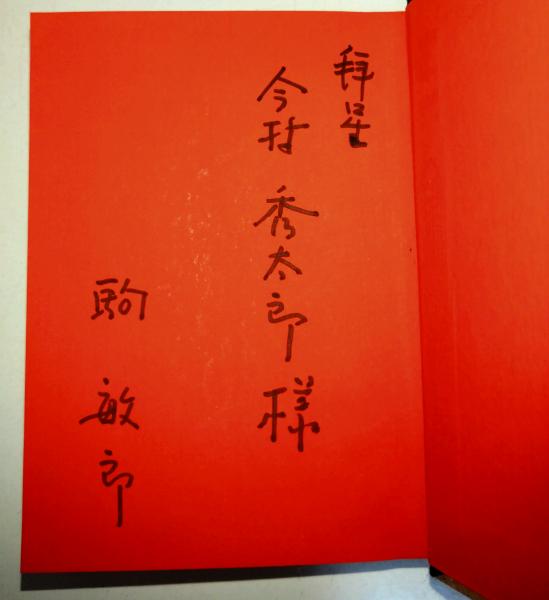 拝呈
今村 秀太郎 様
駒 敏郎